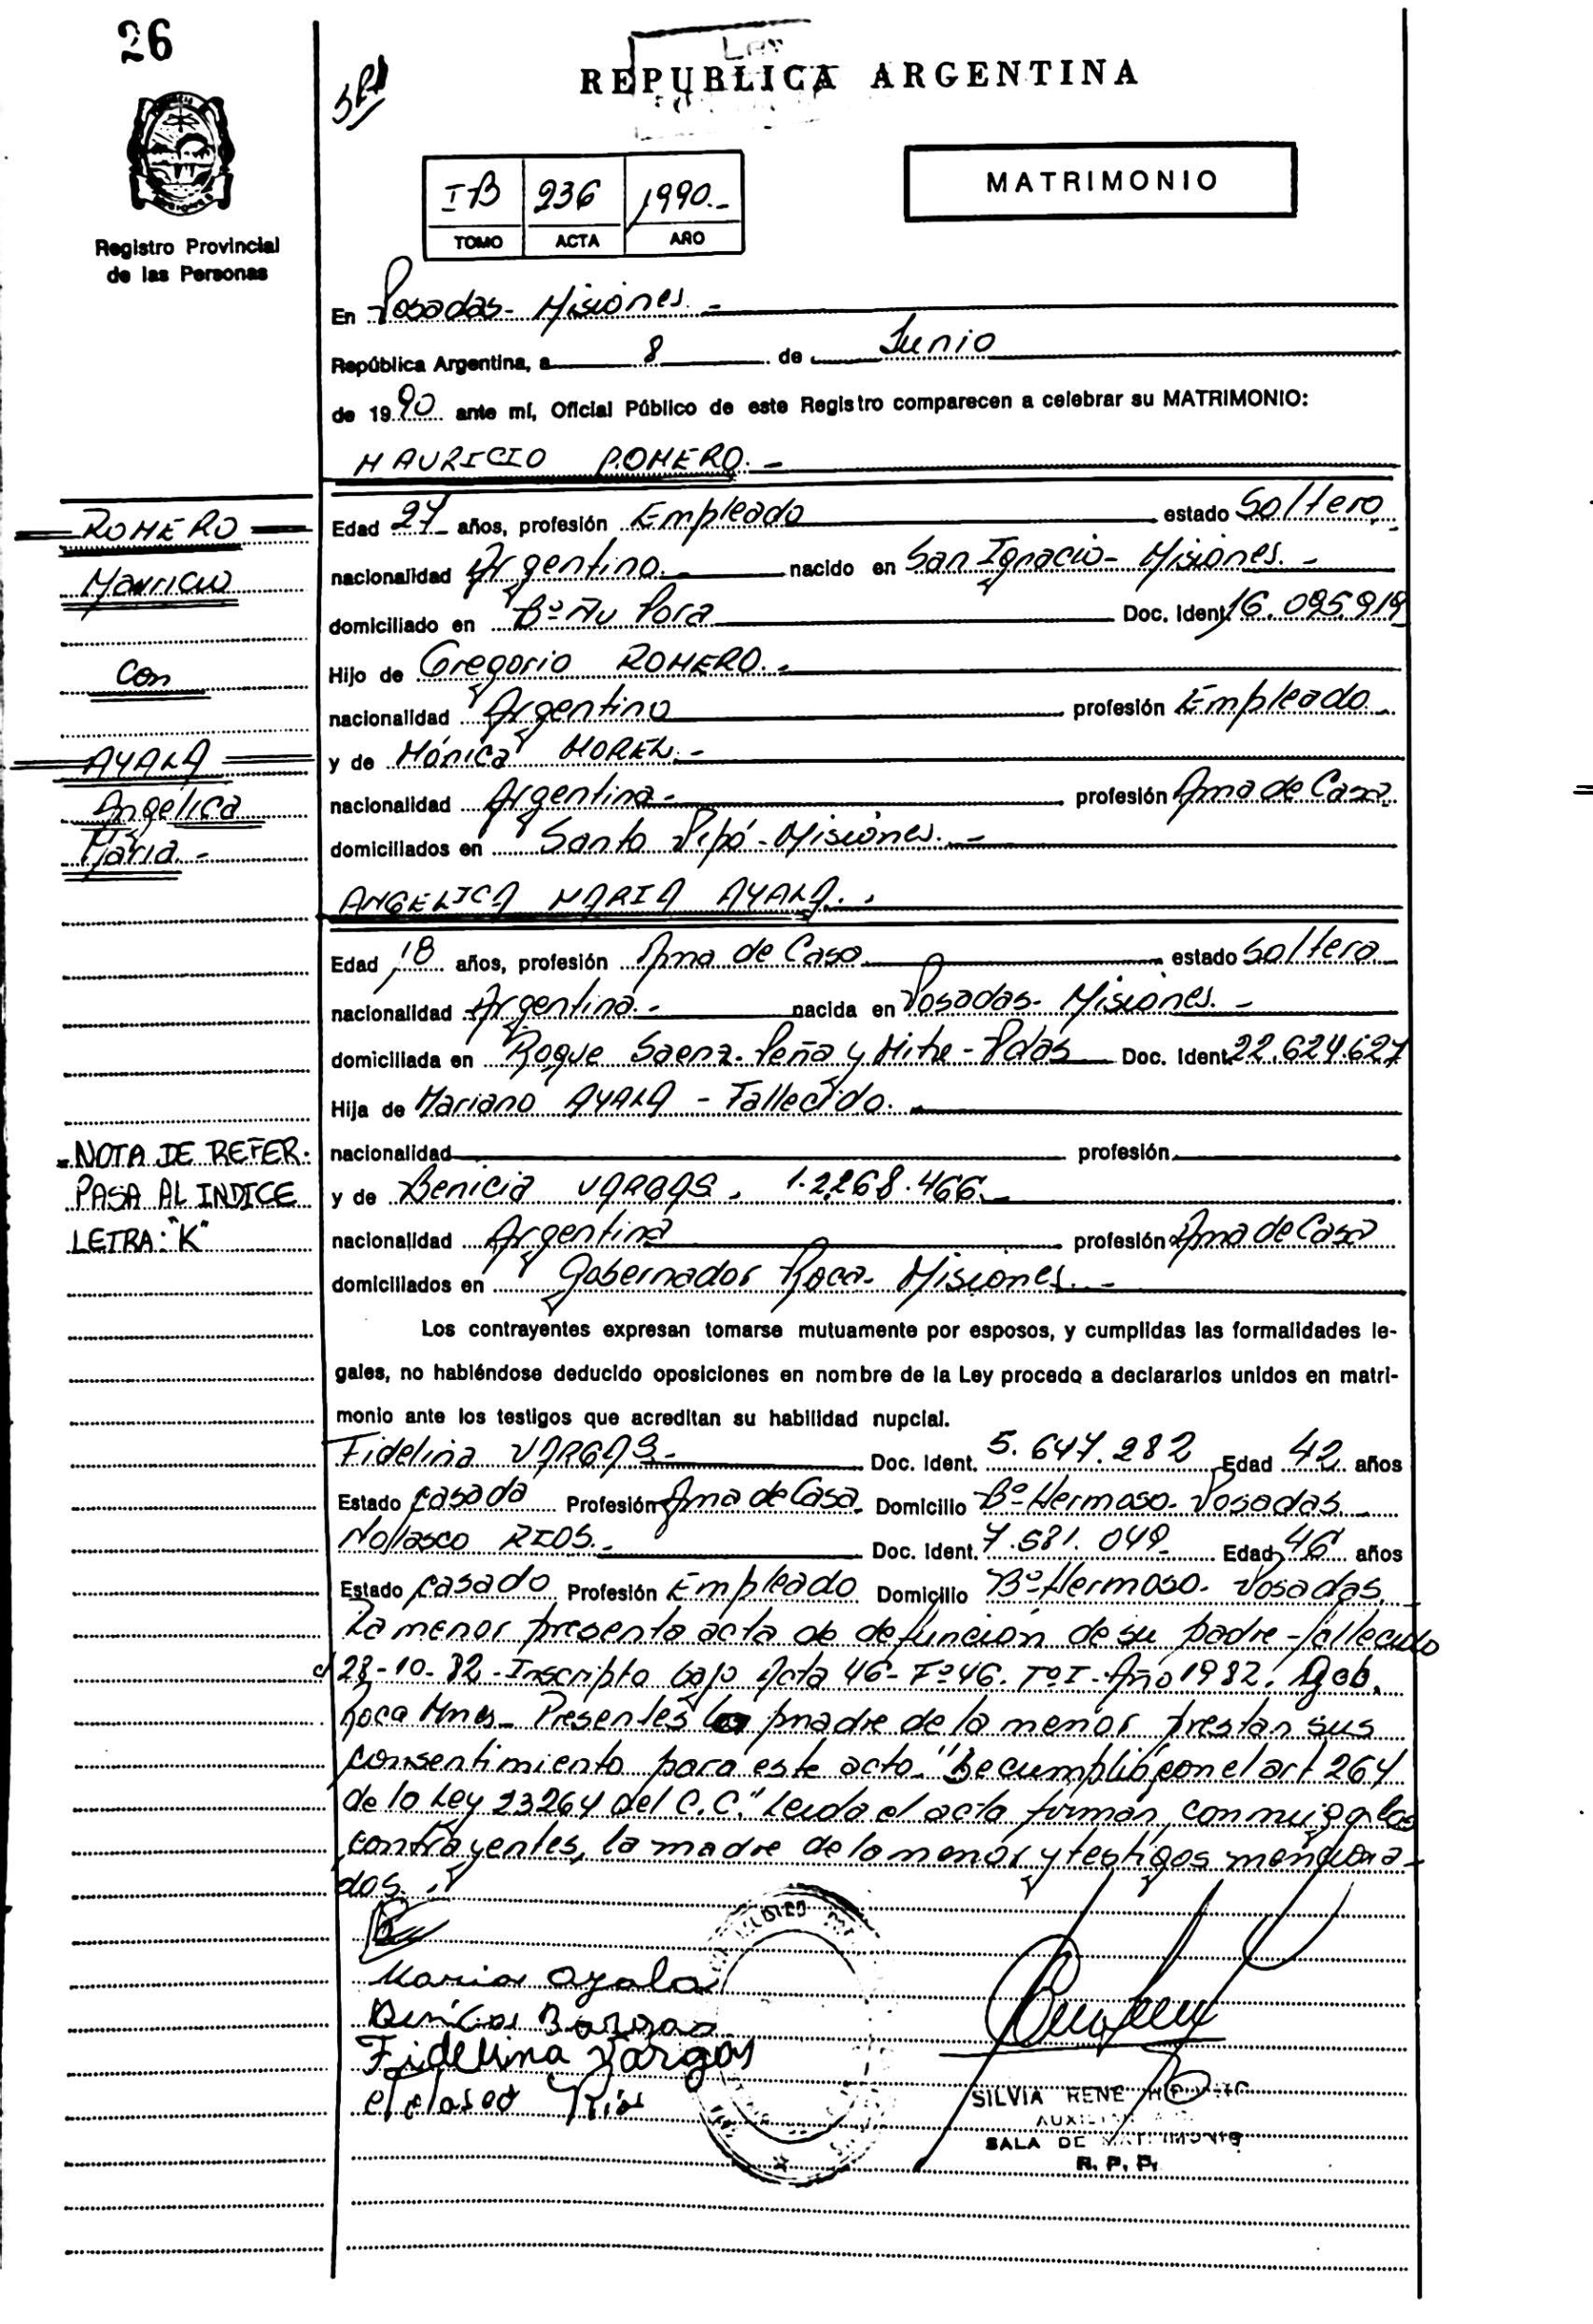 26
REPUBLICA ARGENTINA
MATRIMONIO
I-B 236 1990.-
TOMO ACTA AÑO
Registro Provincial
de las Personas
En Posadas- Misiones.-
República Argentina, a 8 de Junio
de 1990 ante mí, Oficial Público de este Registro comparecen a celebrar su MATRIMONIO:
MAURICIO ROMERO.-
ROMERO
Mauricio
con
AYALA
Angélica
María.-
Edad 27 años, profesión Empleado estado Soltero
nacionalidad Argentino.- nacido en San Ignacio- Misiones.-
domiciliado en Bº Ñu Pora Doc. Ident. 16.095.919
Hijo de Gregorio ROMERO.-
nacionalidad Argentino profesión Empleado
y de Mónica MOREL.-
nacionalidad Argentina.- profesión Ama de Casa
domiciliados en Santo Pipó-Misiones.-
ANGELICA MARIA AYALA.-
Edad 18 años, profesión Ama de Casa estado Soltera
nacionalidad Argentina.- nacida en Posadas- Misiones.-
domiciliada en Roque Saenz. Peña y Mitre-Pdas Doc. Ident. 22.624.627
Hija de Mariano AYALA - Fallecido.
nacionalidad profesión
y de Benicia VARGAS. 1.2268.466.-
nacionalidad Argentina profesión Ama de Casa
domiciliados en Gobernador Roca- Misiones.-
NOTA DE REFER:
PASA AL INDICE
LETRA: "K"
Los contrayentes expresan tomarse mutuamente por esposos, y cumplidas las formalidades le-
gales, no habiéndose deducido oposiciones en nombre de la Ley procedo a declararlos unidos en matri-
monio ante los testigos que acreditan su habilidad nupcial.
Fidelina VARGAS.- Doc. Ident. 5.647.282 Edad 42 años
Estado casada Profesión Ama de Casa Domicilio Bº Hermoso- Posadas.
Nollasco RIOS.- Doc. Ident. 7.581.049 Edad 46 años
Estado casado Profesión Empleado Domicilio Bº Hermoso- Posadas.
La menor presenta acta de defunción de su padre-fallecido
el 28-10-82-Inscripto bajo Acta 46- Fº 46. Tº I- Año 1982. Gob.
Roca Mnes- Presentes la madre de la menor prestan sus
consentimiento para este acto. "Se cumplió con el art 264
de la Ley 23264 del C.C." Leida el acta firman conmigo los
contrayentes, la madre de la menor y testigos menciona-
dos.
Maria ayala
Benicia Bargas
Fidelina Vargas
Rios
SILVIA RENE
AUXILIAR
SALA DE MATRIMONIO
R. P. P.